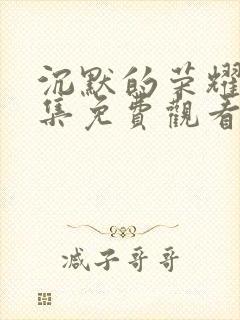 沉默的荣耀
集免費觀看
减子哥哥